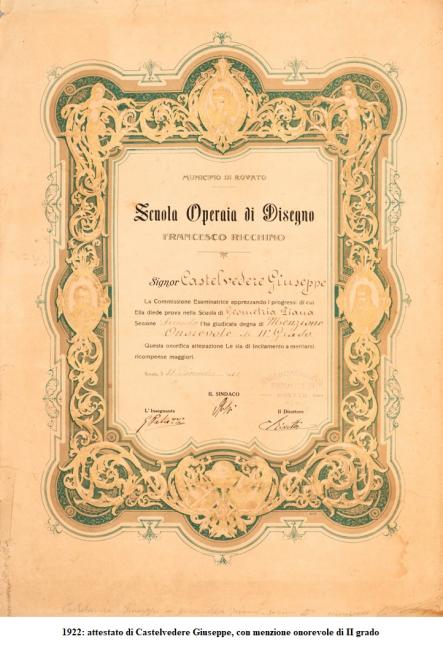 MUNICIPIO DI ROVATO
Scuola Operaia di Disegno
FRANCESCO RICCHINO
Signor Castelvedere Giuseppe
La Commissione Esaminatrice apprezzando i progressi di cui
Ella diede prova nella Scuola di Geometria Piana
Sezione Seconda l'ha giudicata degna di Menzione
Onorevole di IIº Grado
Questa onorifica attestazione Le sia di incitamento a meritarsi
ricompense maggiori.
Rovato, li
IL SINDACO
L'Insegnante
Il Direttore
1922: attestato di Castelvedere Giuseppe, con menzione onorevole di II grado